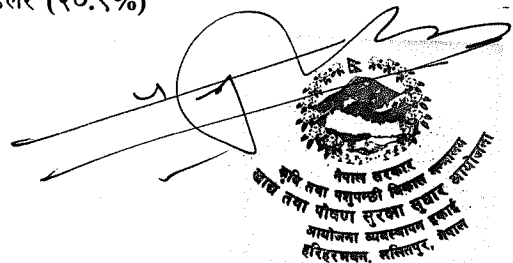 (२०.९%)
नेपाल सरकार
कृषि तथा पशुपन्छी विकास मन्त्रालय
खाद्य तथा पोषण सुरक्षा सुधार आयोजना
आयोजना व्यवस्थापन इकाई
हरिहरभवन, ललितपुर, नेपाल